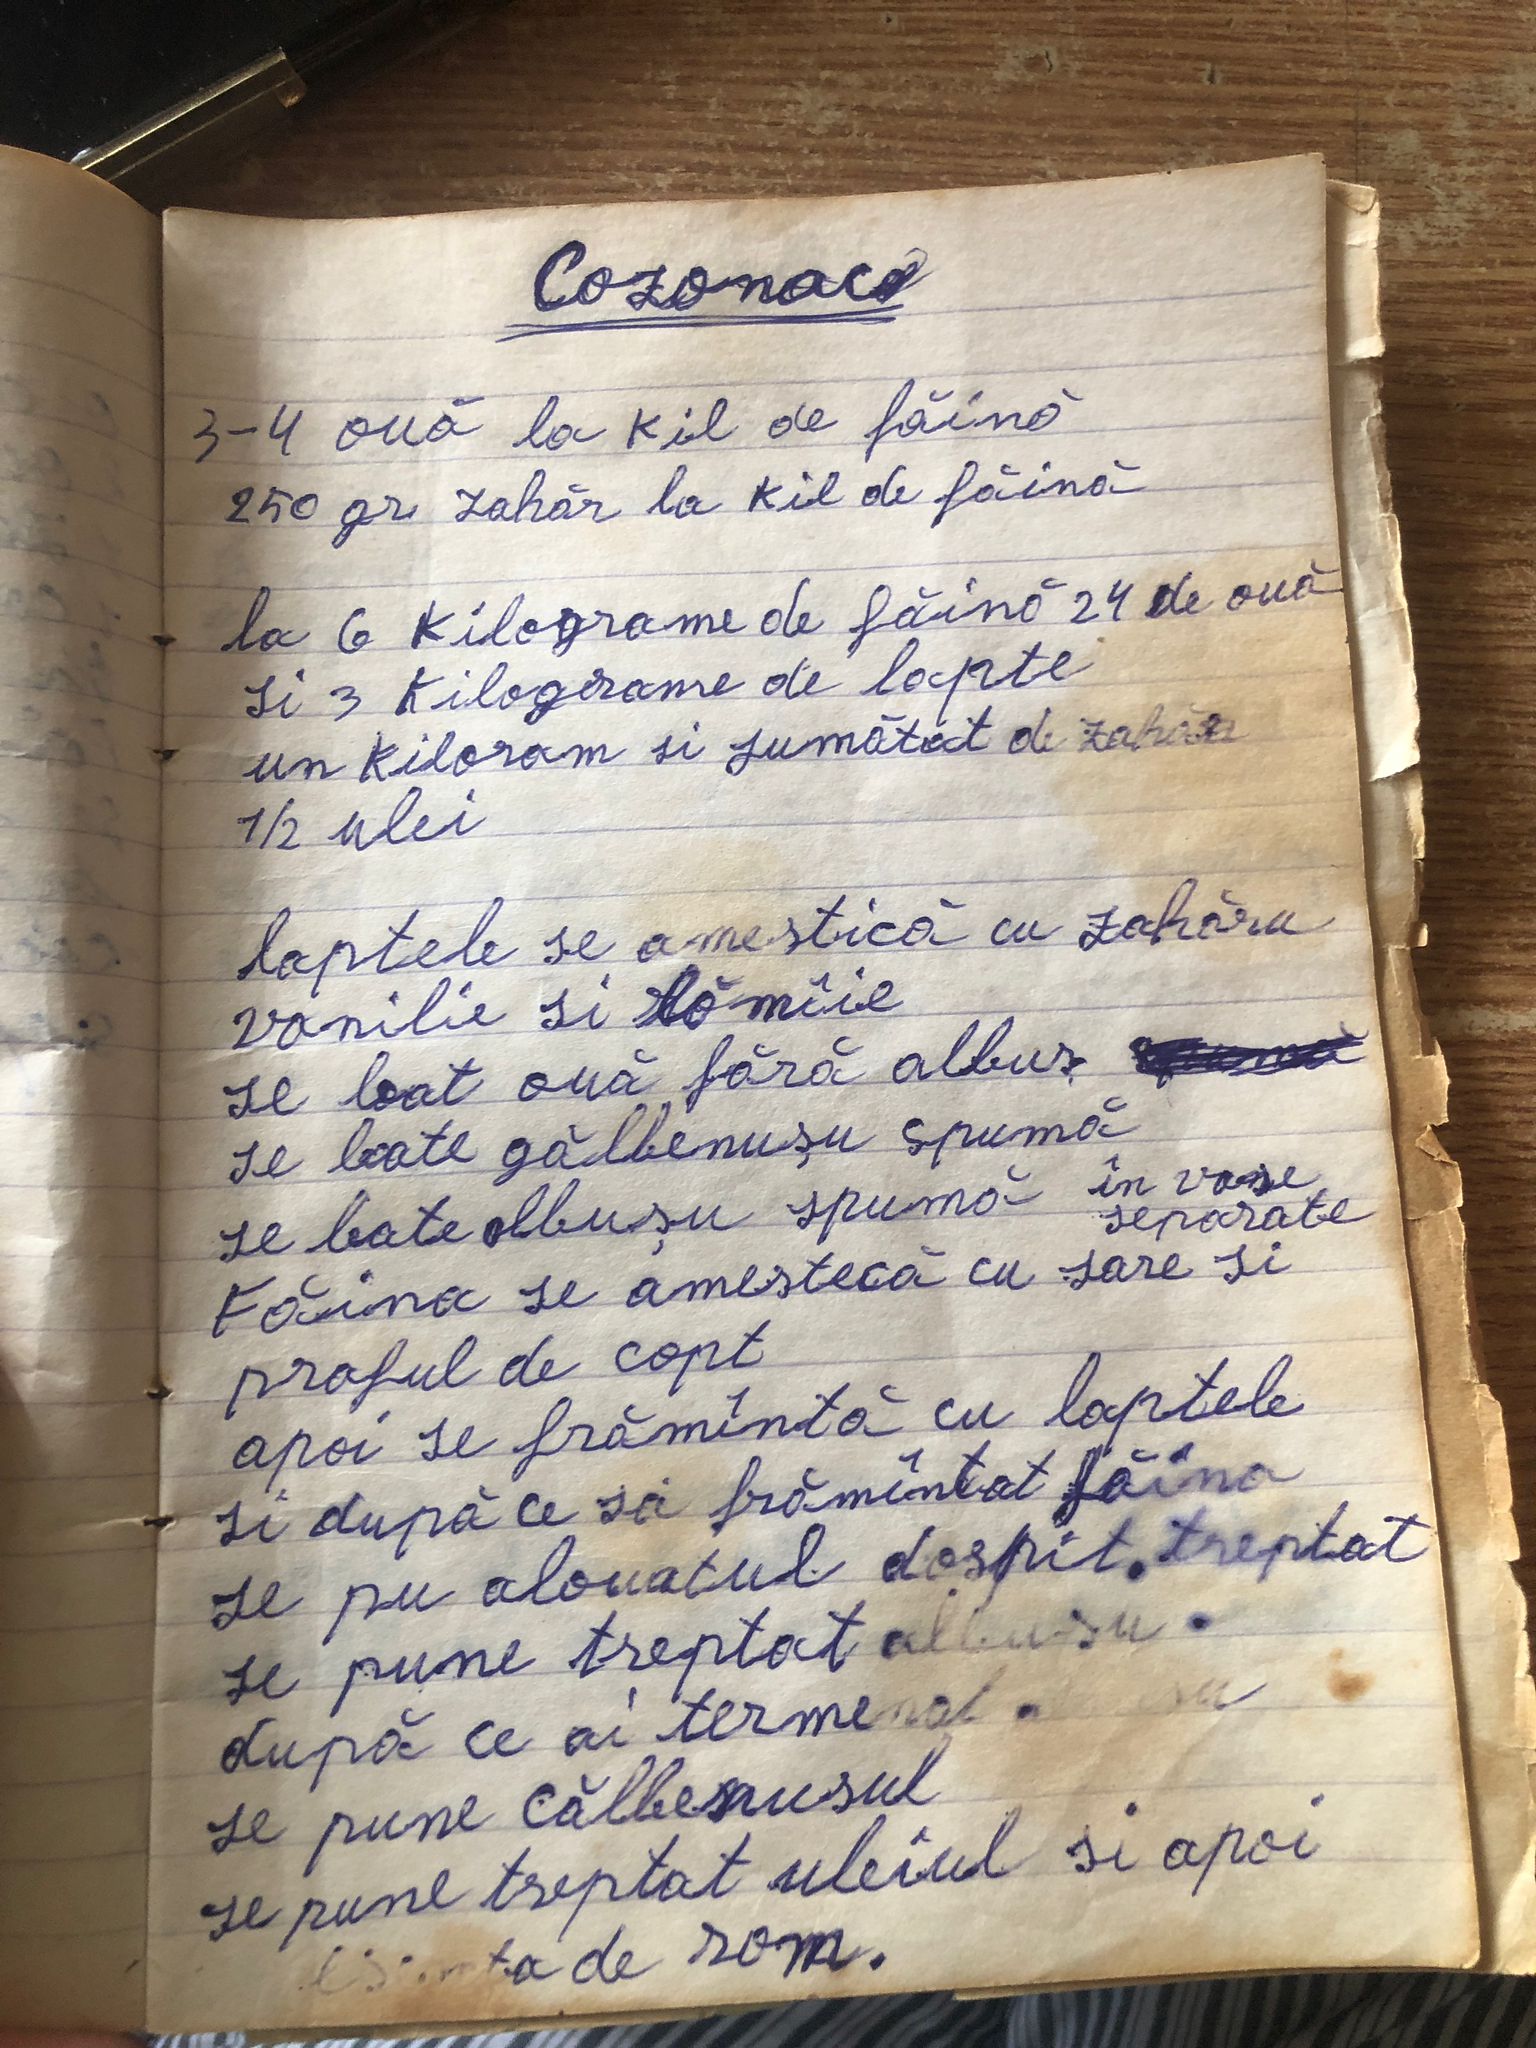 Cozonac
3-4 ouă la kil de făină
250 gr zahăr la kil de făină
la 6 kilograme de făină 24 de ouă
si 3 kilograme de lapte
un kiloram si jumătat de zahăr
1/2 ulei
laptele se amestică cu zahăru
vanilie si lămîie
se bat ouă fără albuș
se bate gălbenușu spumă
se bate albușu spumă în vase
separate
Făina se amestecă cu sare si
praful de copt
apoi se frămîntă cu laptele
si după ce sa frămîntat făina
se pu alouatul dospit. treptat
se pune treptat albusu.
după ce ai termenat
se pune călbenusul
se pune treptat uleiul si apoi
de rom.